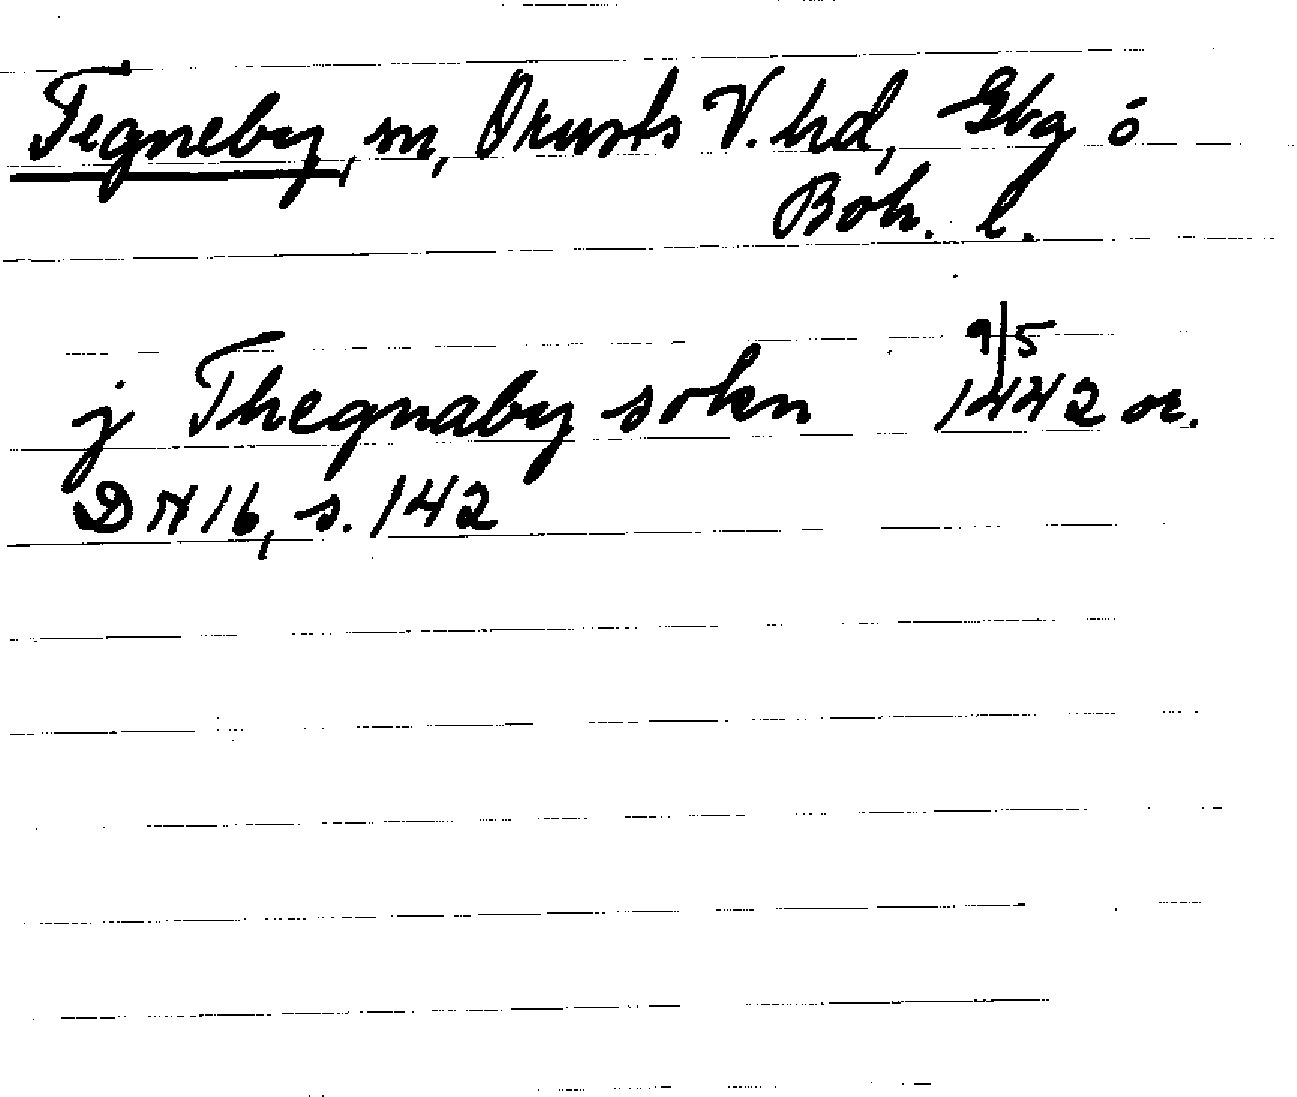 Tegneby, sn, Orusts V. hd, Gbg o
Boh. l.
j Thegnaby sokn 9/5 1442 or.
DN 16, s. 142